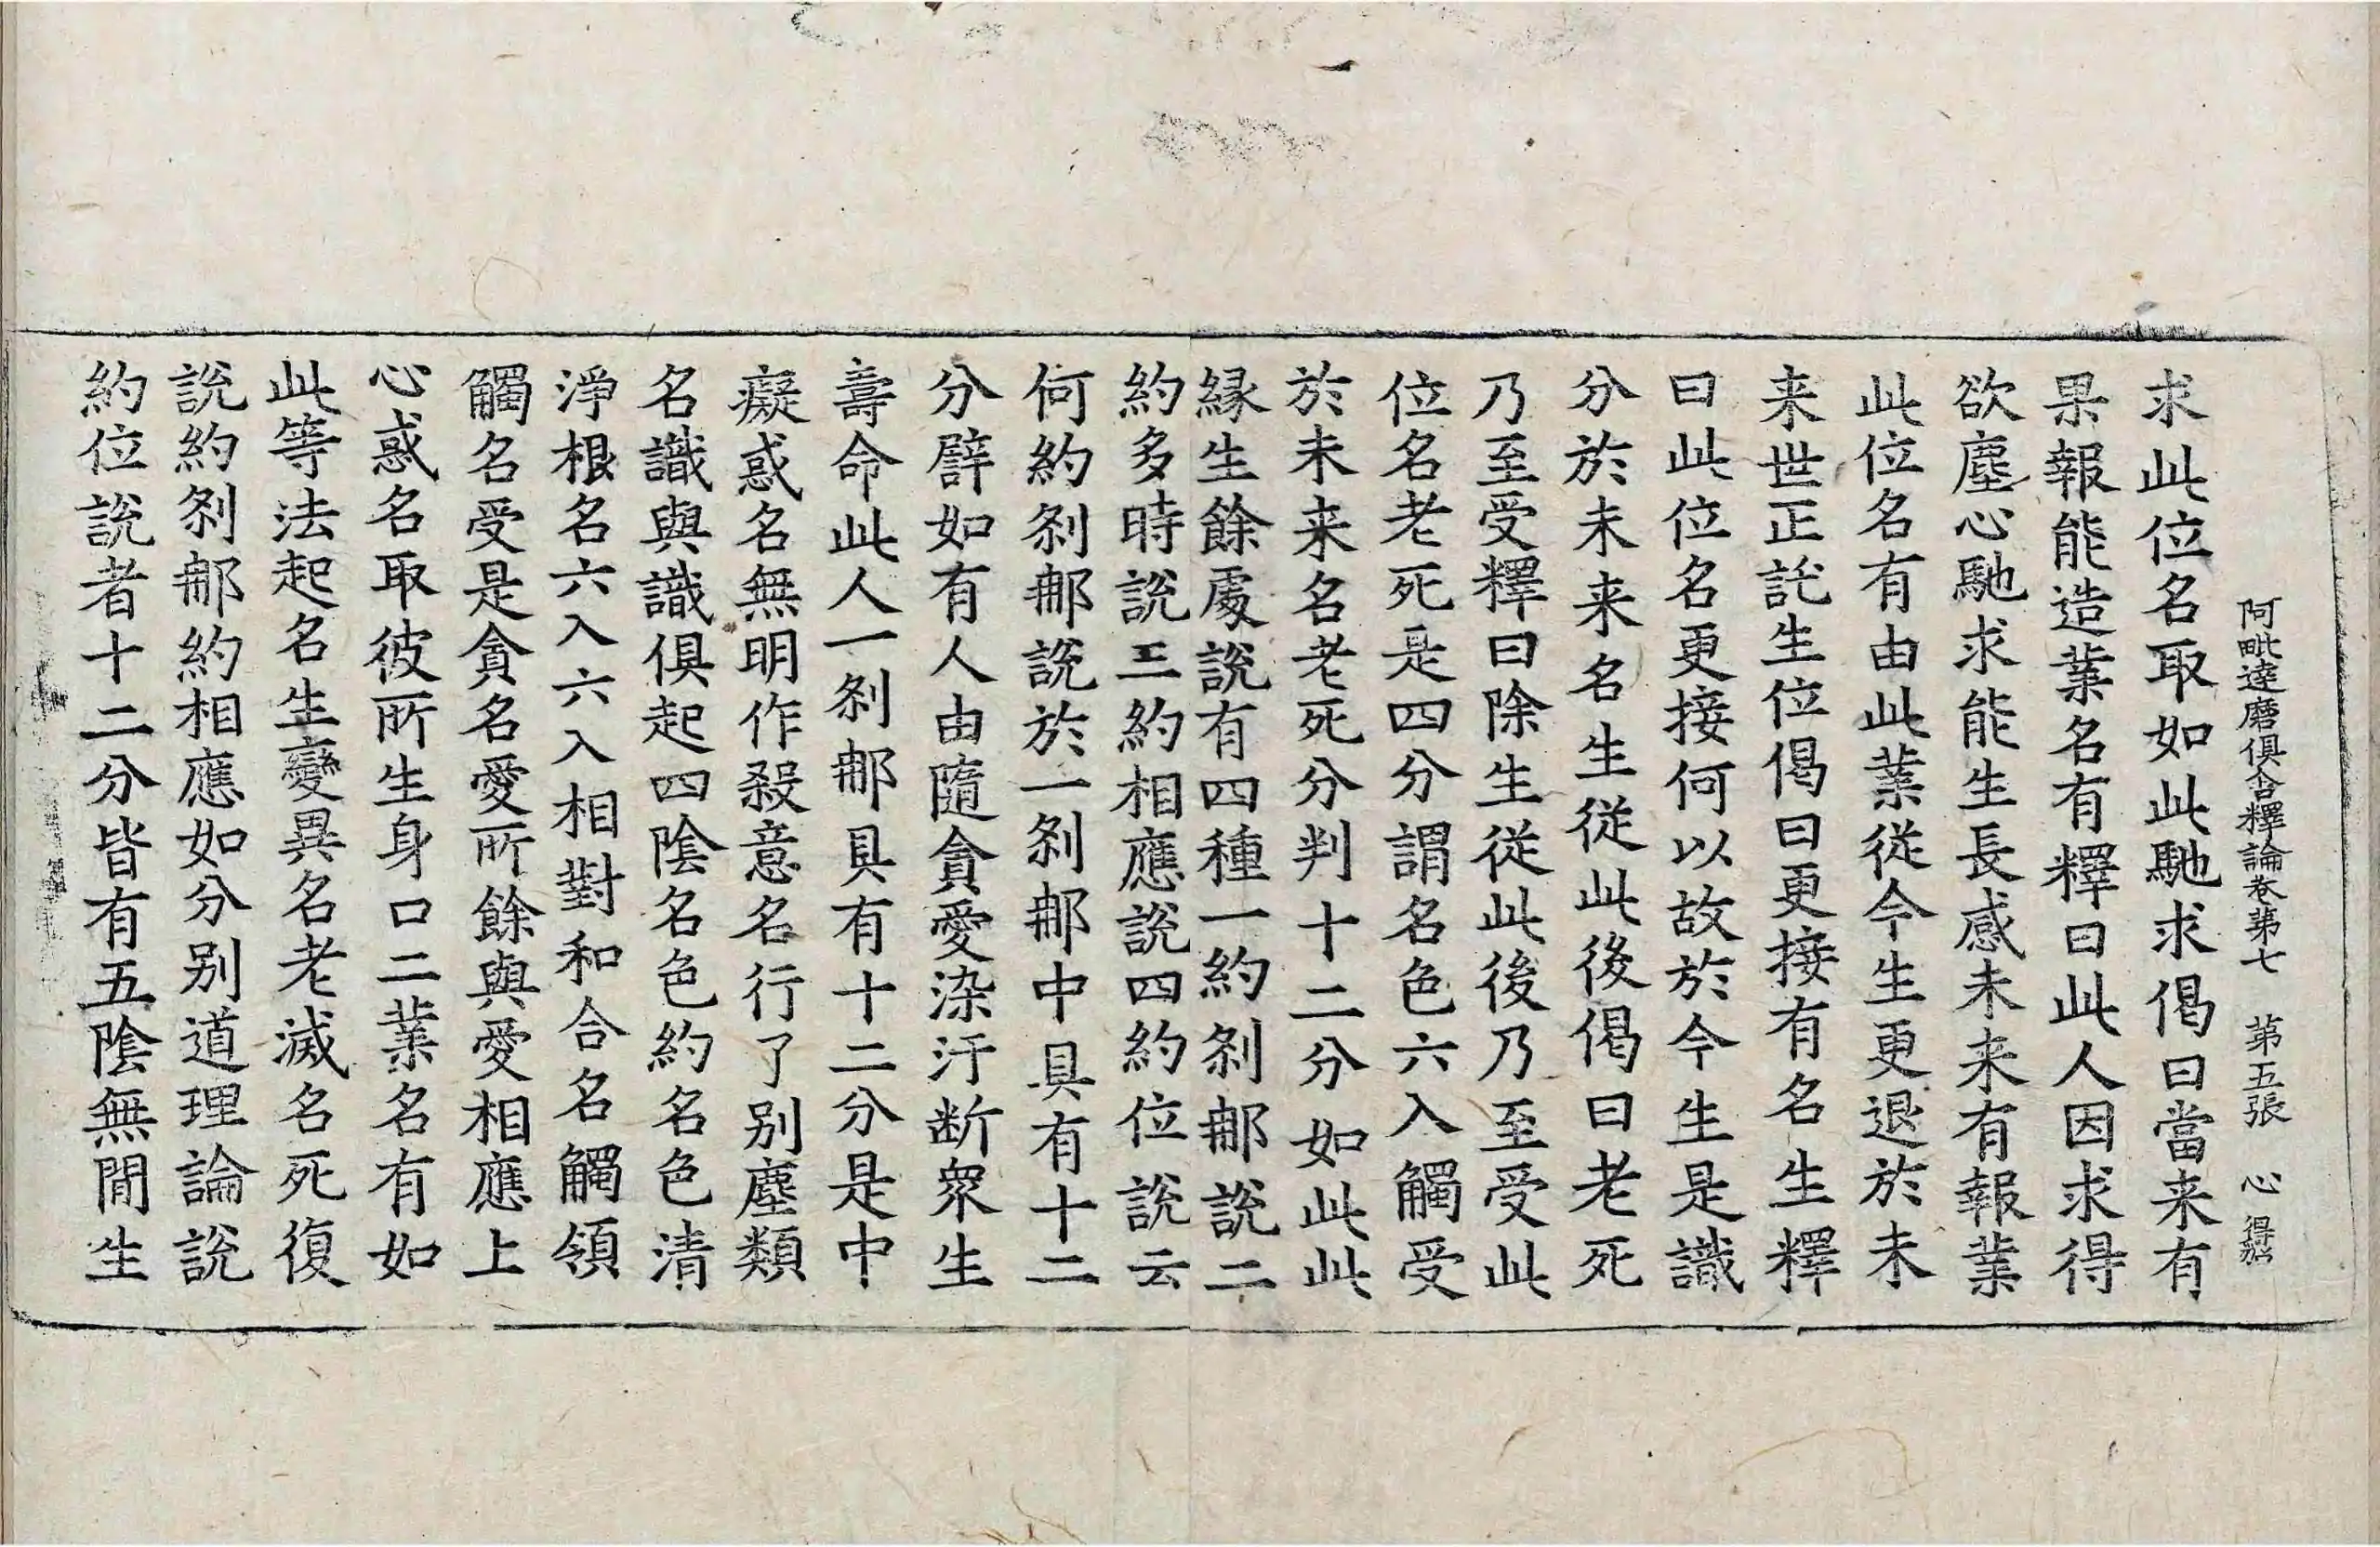 阿毗達磨俱舍釋論卷第七　第五張　心
求此位名取如此馳求偈曰當来有
果報能造業名有釋曰此人因求得
欲塵心馳求能生長感未来有報業
此位名有由此業從今生更退於未
来世正託生位偈曰更接有名生釋
曰此位名更接何以故於今生是識
分於未来名生從此後偈曰老死
乃至受釋曰除生從此後乃至受此
位名老死是四分謂名色六入觸受
於未来名老死分判十二分如此此
縁生餘處說有四種一約刹那說二
約多時說三約相應說四約位說云
何約刹那說於一刹那中具有十二
分譬如有人由隨貪愛染汙断衆生
壽命此人一刹那具有十二分是中
癡惑名無明作殺意名行了别塵類
名識與識俱起四陰名色約名色清
淨根名六入六入相對和合名觸領
觸名受是貪名愛所餘與愛相應上
心惑名取彼所生身口二業名有如
此等法起名生變異名老滅名死復
說約刹那約相應如分别道理論說
約位說者十二分皆有五陰無間生